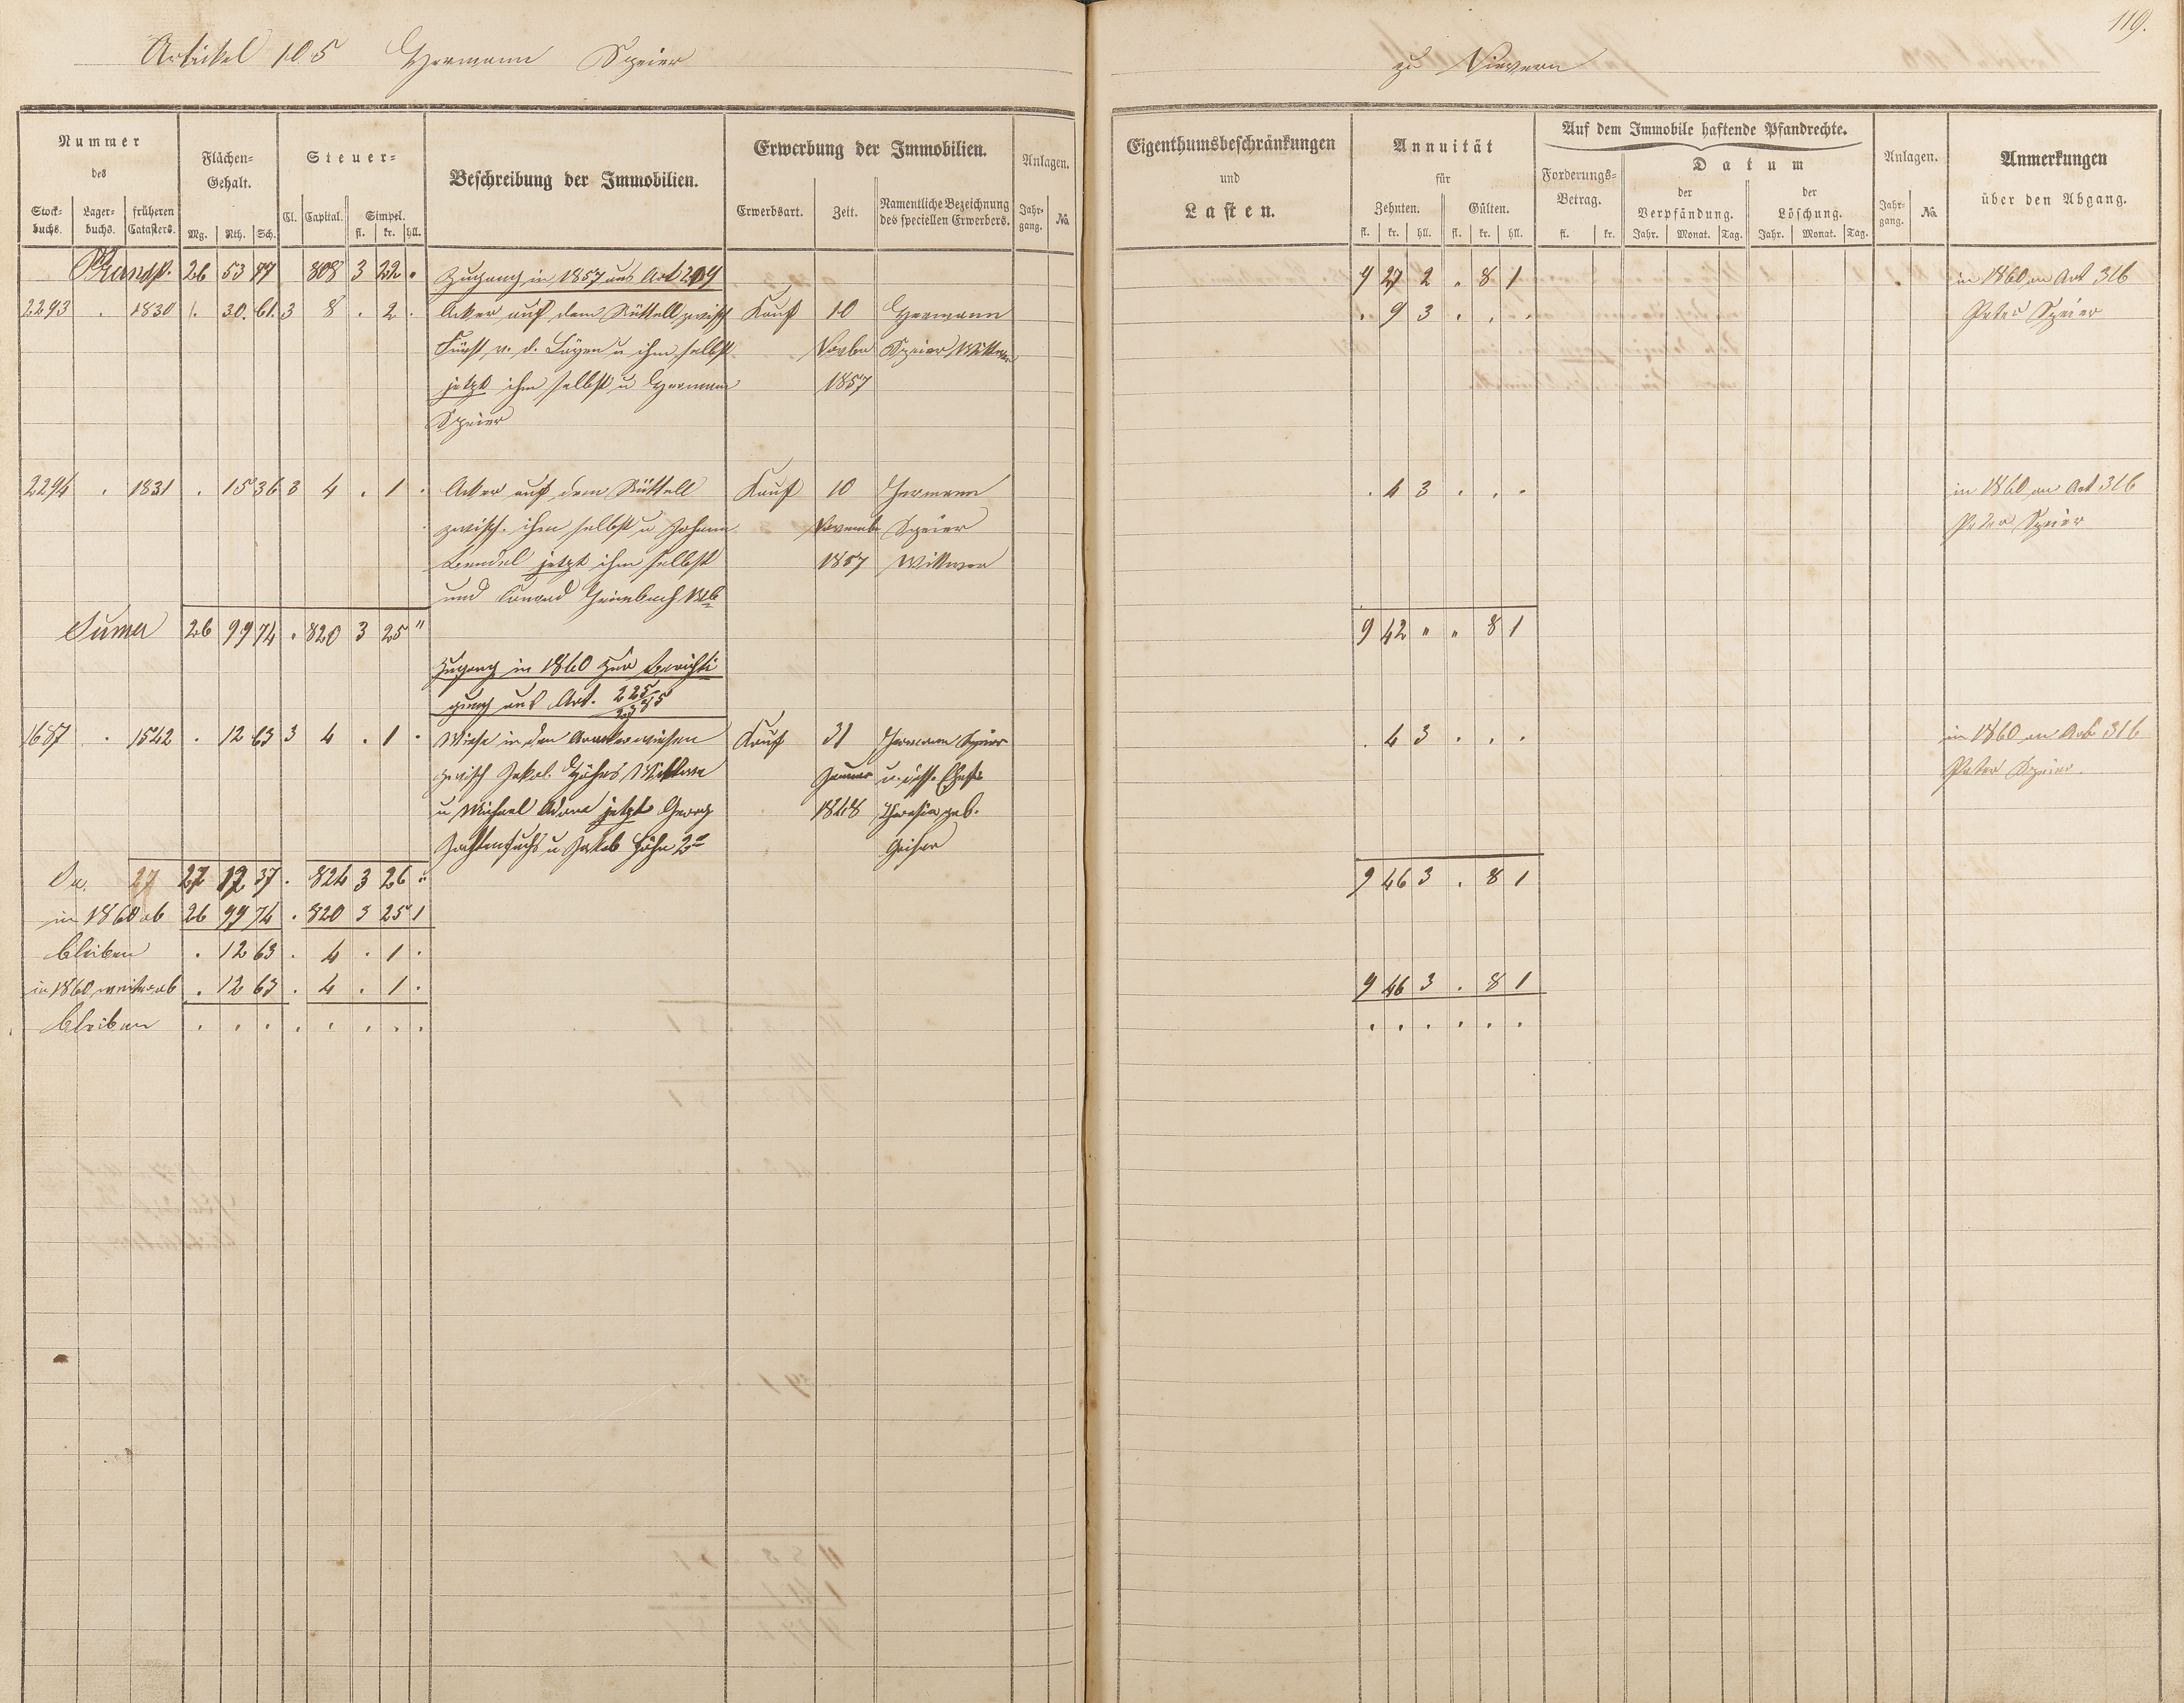 119.
Artikel 105 Hermann Speier
zu Nievern
Nummer
des
Stock-
buchs.
Lager-
buchs.
früheren
Catasters.
Flächen-
Gehalt.
Mg. Rth. Sch.
Steuer-
Cl. Capital. Simpel.
fl. kr. hll.
Beschreibung der Immobilien.
Erwerbung der Immobilien.
Erwerbsart. Zeit.
Namentliche Bezeichnung
des speciellen Erwerbers.
Anlagen.
Jahr-
gang.
No.
Eigenthumsbeschränkungen
und
Lasten.
Annuität
für
Zehnten. Gülten.
fl. kr. hll. fl. kr. hll.
Auf dem Immobile haftende Pfandrechte.
Forderungs-
Betrag.
fl. kr.
Datum
der
Verpfändung.
Jahr. Monat. Tag.
der
Löschung.
Jahr. Monat. Tag.
Anlagen.
Jahr-
gang.
No.
Anmerkungen
über den Abgang.
Transp. 26 53 77 808 3 22 . Zugang in 1857 aus Art 209 9 27 2 . 8 1 in 1860 an Art 316
2293 . 1830 . 30. 61. 3 8 . 2 . Acker auf dem Rüttell zwisch Kauf 10 Hermann . 9 3 . . . Peter Speier
Fürst v. d. Leyen u ihm selbst Novbr Speier Wittwer
jetzt ihm selbst u Hermann 1857
Speier
2294 . 1831 . 15 36 3 4 . 1 . Acker auf dem Rüttell Kauf 10 Hermann . 4 3 . . . in 1860 an Art 316
zwisch. ihm selbst u Johann Novembr Speier Peter Speier
jetzt ihm selbst 1857 Wittwer
und Conrad
Suma 26 99 74 . 820 3 25 " 9 42 " " 8 1
Zugang in 1860 zur Berichti
gung aus Art. 225
1687 . 1542 . 12 63 3 4 . 1 . Wiese in den Kauf 31 Hermann Speier . 4 3 . . . in 1860 an Art 316
zwisch Jakob Höhns Wittwe Januar u. dess. Ehefr Peter Speier.
u Michael Adam jetzt Georg 1848 Theresia geb.
u Jakob Höhn 2r
27 27 12 37 . 824 3 26 " 9 46 3 . 8 1
in 1860 ab 26 99 74 . 820 3 25 1
bleiben . 12 63 . 4 . 1 .
in 1860 weiter ab . 12 63 . 4 . 1 . 9 46 3 . 8 1
bleiben . . . . . . . . . . . . . .